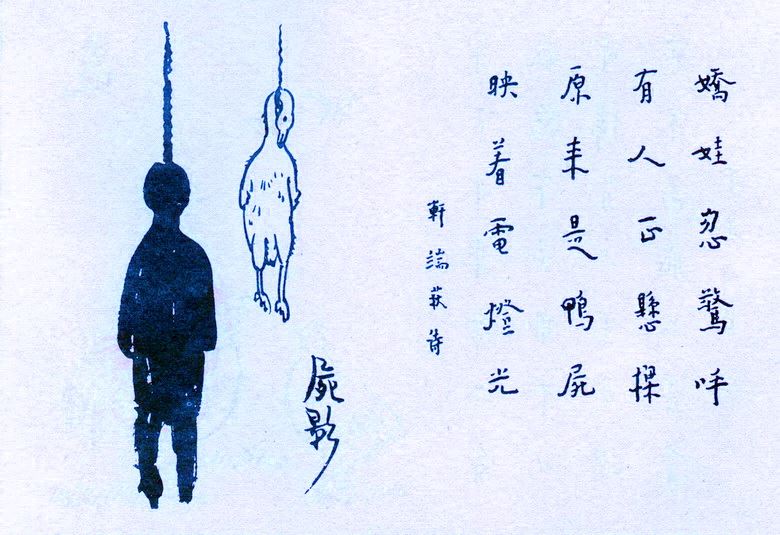 嬌娃忽驚呼
有人正懸樑
原来是鴨屍
映着電燈光
軒端萩詩
屍影